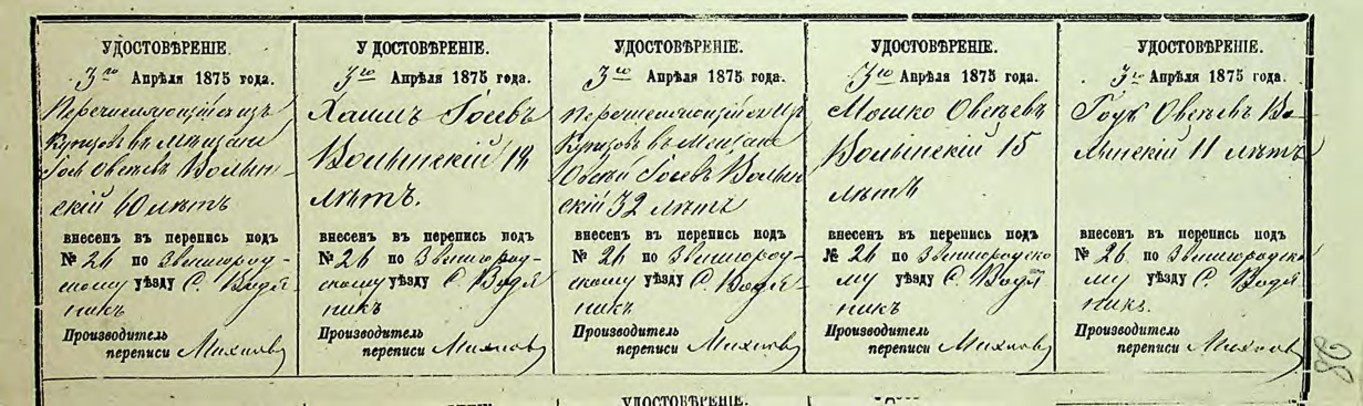 УДОСТОВѢРЕНІЕ.
3го Апрѣля 1875 года.
Перечисляющійся изъ
Купцовъ въ Мещане
Гось Овсѣевъ Волын-
скій 60 лѣтъ
внесенъ въ перепись подъ
№ 26 по Звенигород-
скому уѣзду С. Водя-
никъ
Производитель
переписи
УДОСТОВѢРЕНІЕ.
3го Апрѣля 1875 года.
Хаимъ Госевъ
Волынскій 18
лѣтъ.
внесенъ въ перепись подъ
№ 26 по Звенигород-
скому уѣзду С. Водя
никъ
Производитель
переписи
УДОСТОВѢРЕНІЕ.
3го Апрѣля 1875 года.
Перечисляющійся изъ
Купцовъ въ Мещане
Овсѣй Госевъ Волын
скій 32 лѣтъ
внесенъ въ перепись подъ
№ 26 по Звенигород-
скому уѣзду С. Водя-
никъ
Производитель
переписи
УДОСТОВѢРЕНІЕ.
3го Апрѣля 1875 года.
Мошко Овсѣевъ
Волынскій 15
лѣтъ
внесенъ въ перепись подъ
№ 26 по Звенигородско
му уѣзду С. Водя
никъ
Производитель
переписи
УДОСТОВѢРЕНІЕ.
3го Апрѣля 1875 года.
Овсѣевъ Во-
лынскій 11 лѣтъ
внесенъ въ перепись подъ
№ 26 по Звенигородско
му уѣзду С. Водя
никъ.
Производитель
переписи
УДОСТОВѢРЕНІЕ.